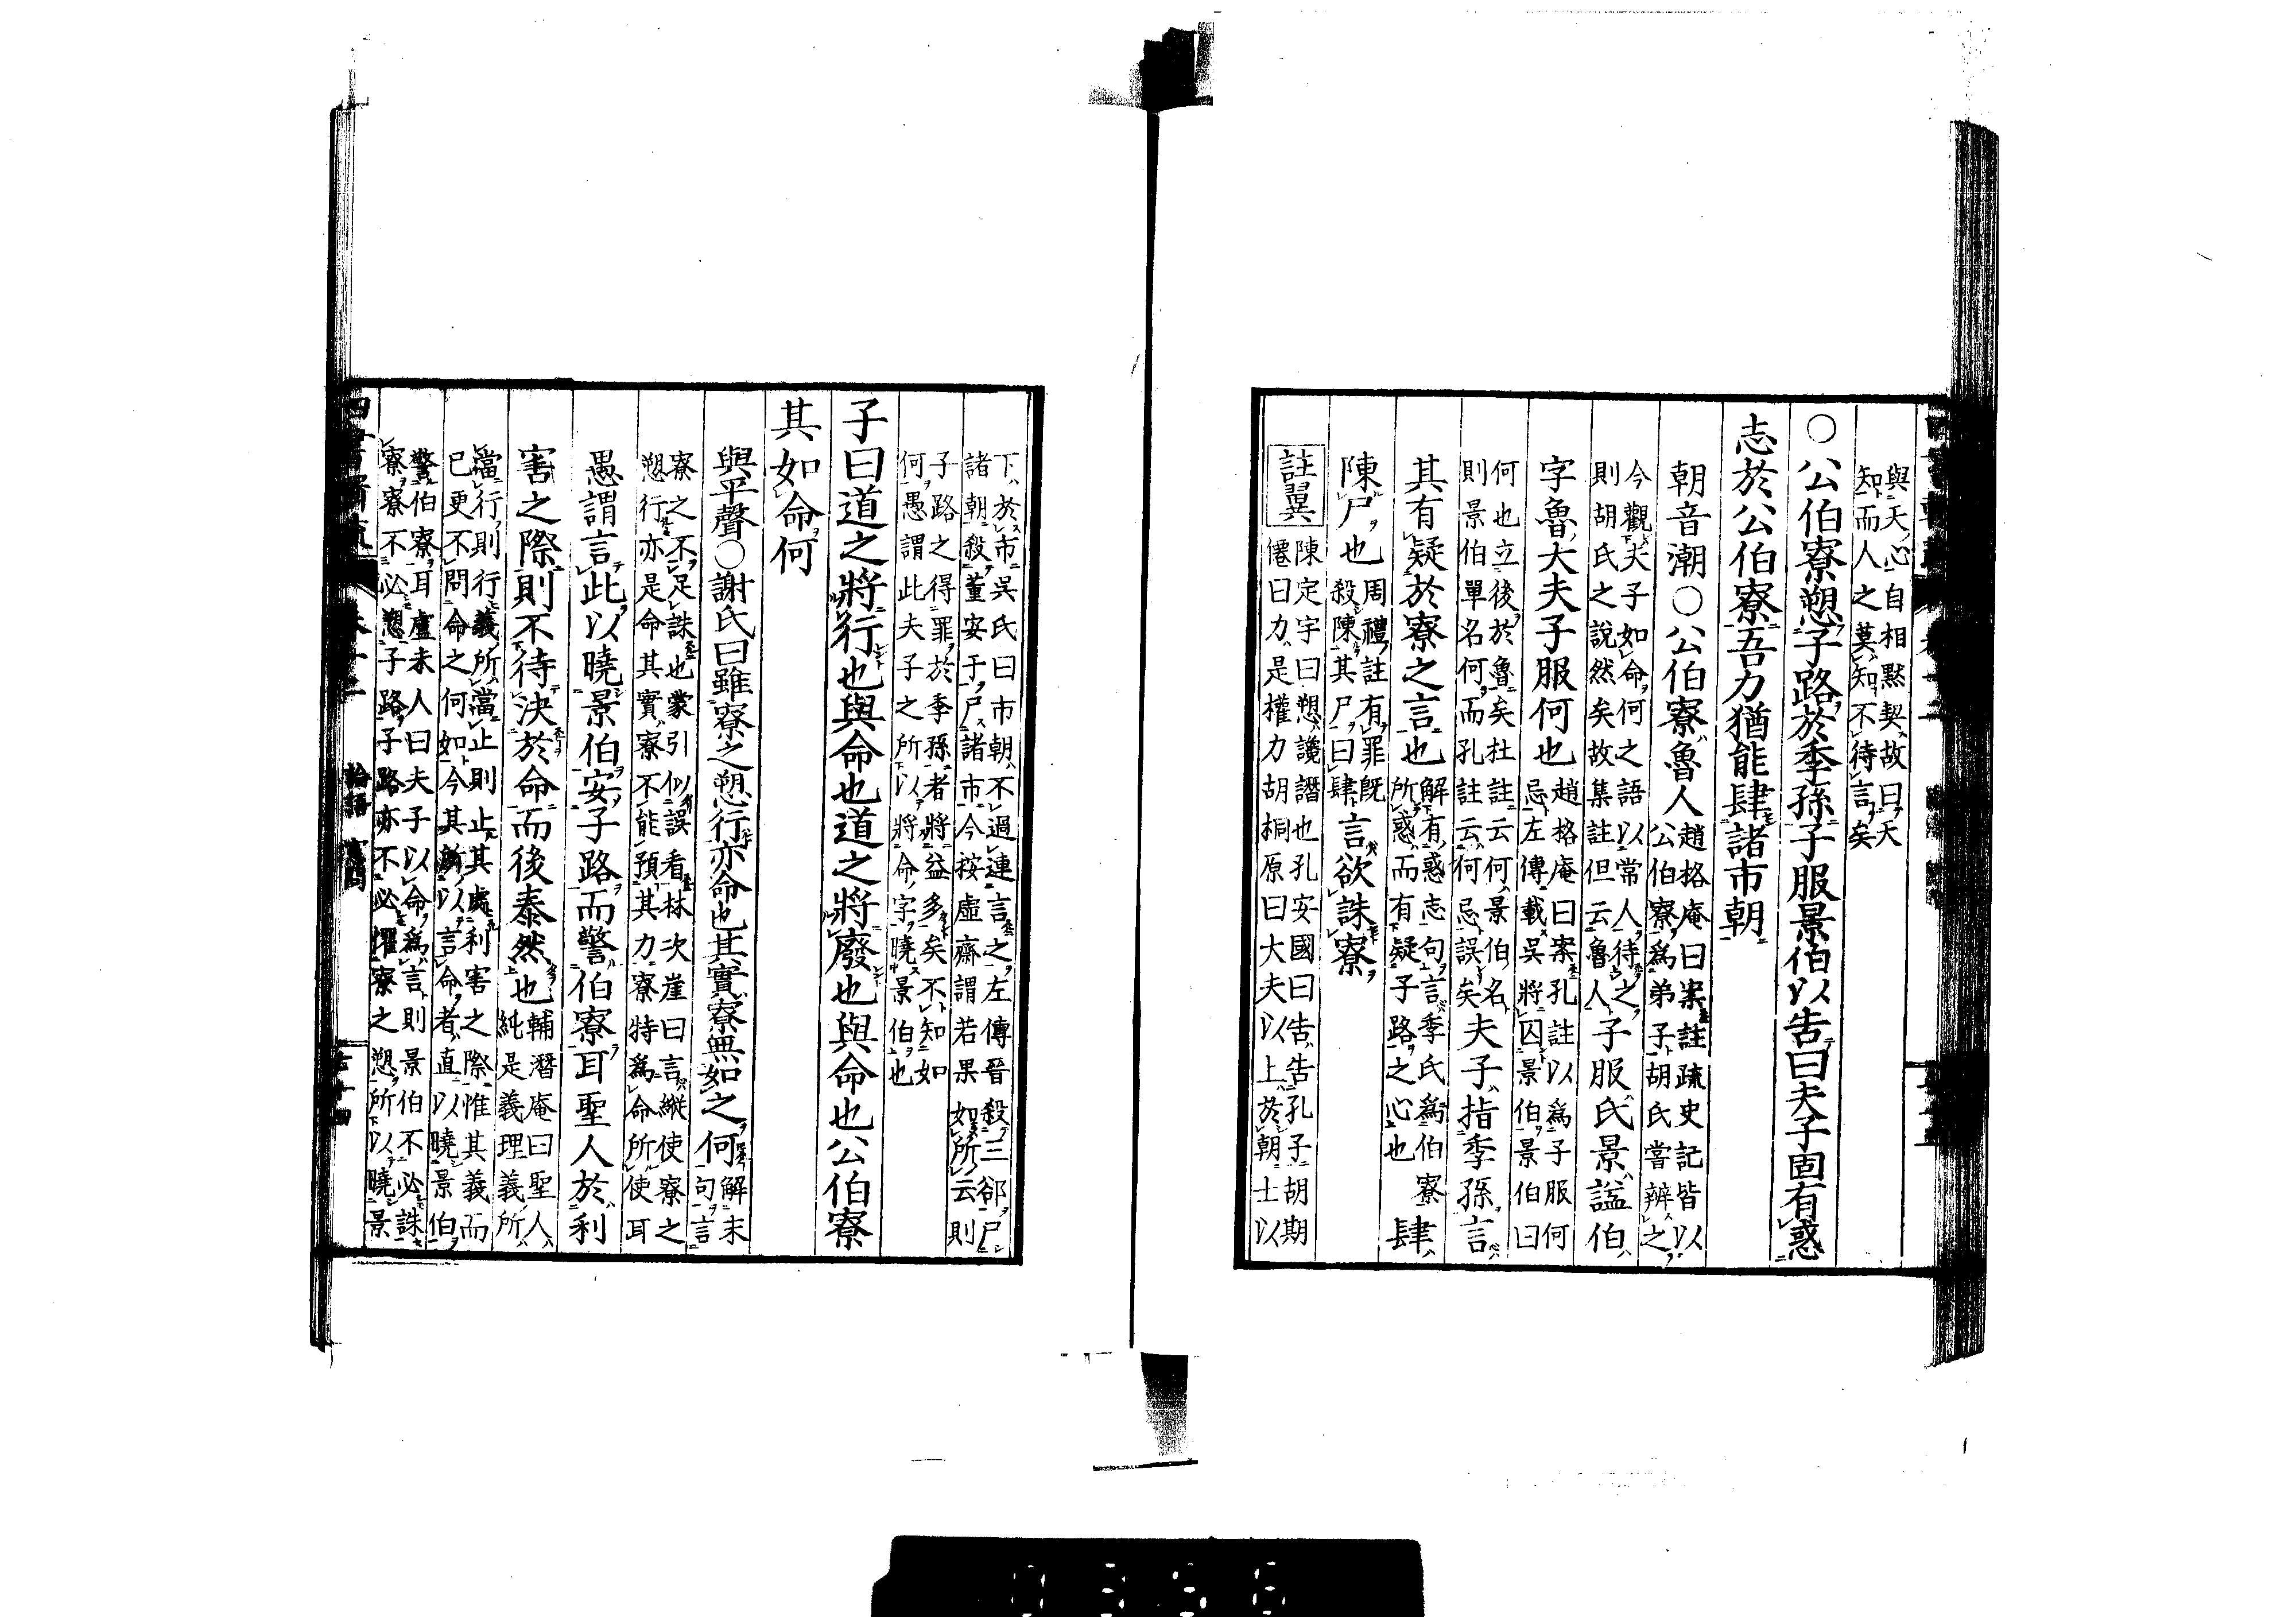 與天心自相默契故曰天
知而人之莫知不待言矣
○公伯寮愬子路於季孫子服景伯以告曰夫子固有惑
志於公伯寮吾力猶能肆諸市朝
朝音潮○公伯寮魯人趙格庵曰案註疏史記皆以
公伯寮爲弟子胡氏嘗辨之
今觀夫子如命何之語以常人待之
則胡氏之說然矣故集註但云魯人子服氏景謚伯
字魯大夫子服何也趙格庵曰案孔註以爲子服何
忌左傳載吳將囚景伯景伯曰
何也立後於魯矣杜註云何景伯名
則景伯單名何而孔註云何忌誤矣夫子指季孫言
其有疑於寮之言也解有惑志句言季氏爲伯寮
所惑而有疑子路之心也肆
陳尸也周禮註有罪旣
殺陳其尸曰肆言欲誅寮
註翼
陳定宇曰愬讒譖也孔安國曰告告孔子胡期
僊曰力是權力胡桐原曰大夫以上於朝士以
下於市吳氏曰市朝不過連言之左傳晉殺三郤尸
諸朝殺董安于尸諸市今按虛齋謂若果如所云則
子路之得罪於季孫者將益多矣不知如
何愚謂此夫子之所以將命字曉景伯也
子曰道之將行也與命也道之將廢也與命也公伯寮
其如命何
與平聲○謝氏曰雖寮之愬行亦命也其實寮無如之何解末
句言
寮之不足誅也蒙引似誤看林次崖曰言縱使寮之
愬行亦是命其實寮不能預其力寮特爲命所使耳
愚謂言此以曉景伯安子路而警伯寮耳聖人於利
害之際則不待決於命而後泰然也輔潛庵曰聖人
純是義理義所
當行則行義所當止則止其處利害之際惟其義而
已更不問命之何如今其所以言命者直以曉景伯
警伯寮耳盧未人曰夫子以命爲言則景伯不必誅
寮寮不必愬子路子路亦不必懼寮之愬所以曉景
論語 憲問